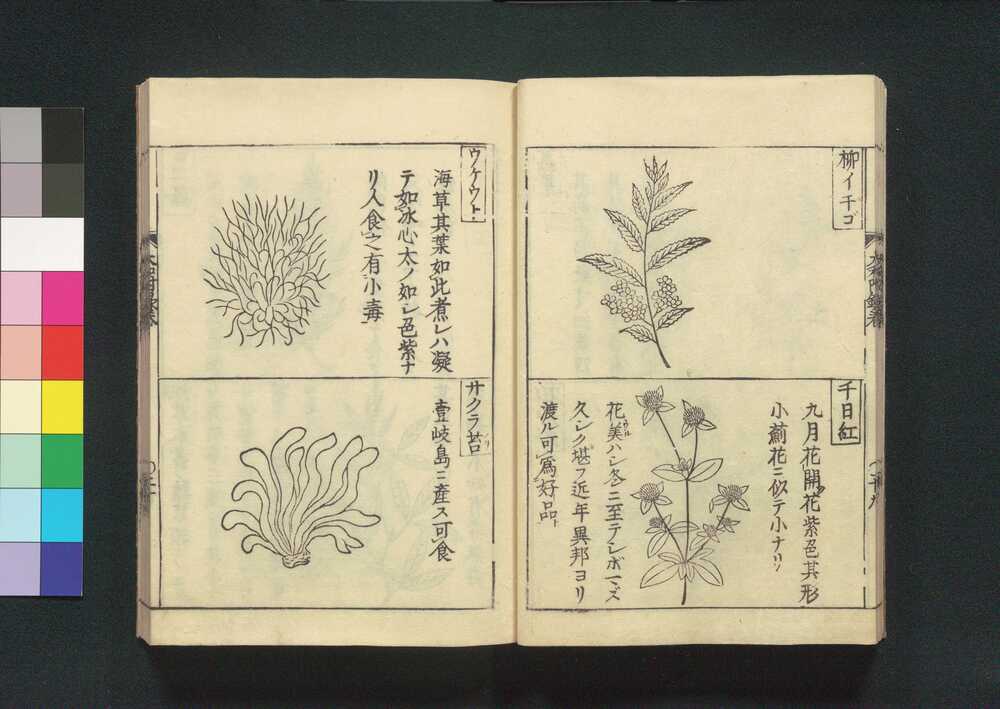 柳イチゴ
千日紅
九月花開ク花紫色其形
小薊花ニ似テ小ナリ
花美ハシ冬ニ至テシボマズ
久シク堪フ近年異邦ヨリ
渡ル可為好品
ウケウト
海草其葉如此煮レハ凝
テ如氷心太ノ如シ色紫ナ
リ人食之有小毒
サクラ苔ノリ
壹岐島ニ産ス可食